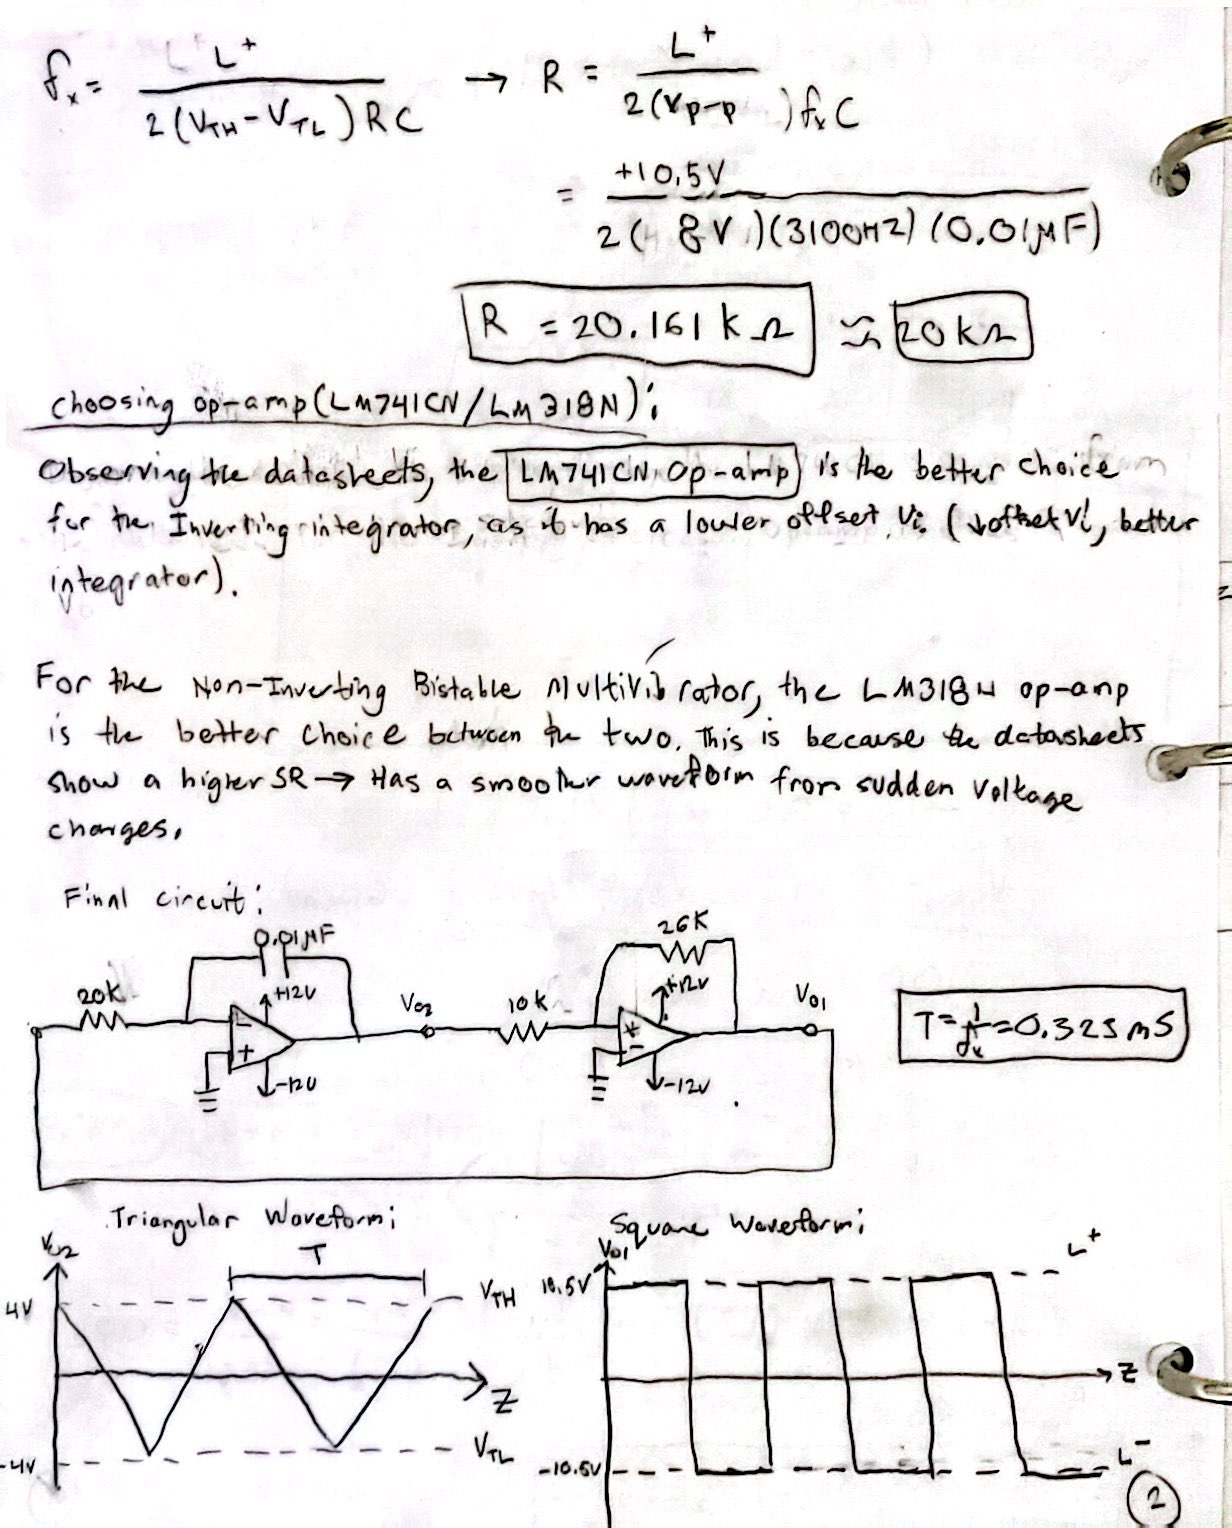 fx = L+ / 2(VTH-VTL)RC → R = L+ / 2(Vp-p)fxC
= +10.5V / 2(8V)(3100Hz)(0.01µF)
R = 20.161 kΩ ≈ 20kΩ
Choosing op-amp (LM741CN/LM318N):
Observing the datasheets, the LM741CN Op-amp is the better choice
for the Inverting integrator, as it has a lower offset Vi. (↓offset Vi, better
integrator).
For the Non-Inverting Bistable Multivibrator, the LM318N op-amp
is the better choice between the two. This is because the datasheets
show a higher SR → Has a smoother waveform from sudden voltage
changes.
Final circuit:
0.01µF
26K
20K
+12V
V02
10K
+12V
V01
-
+
+
-
-12V
-12V
T = 1/fx = 0.323mS
Triangular Waveform:
Square Waveform:
V02
T
V01
L+
4V
VTH
10.5V
Z
Z
-4V
VTL
-10.5V
L-
2